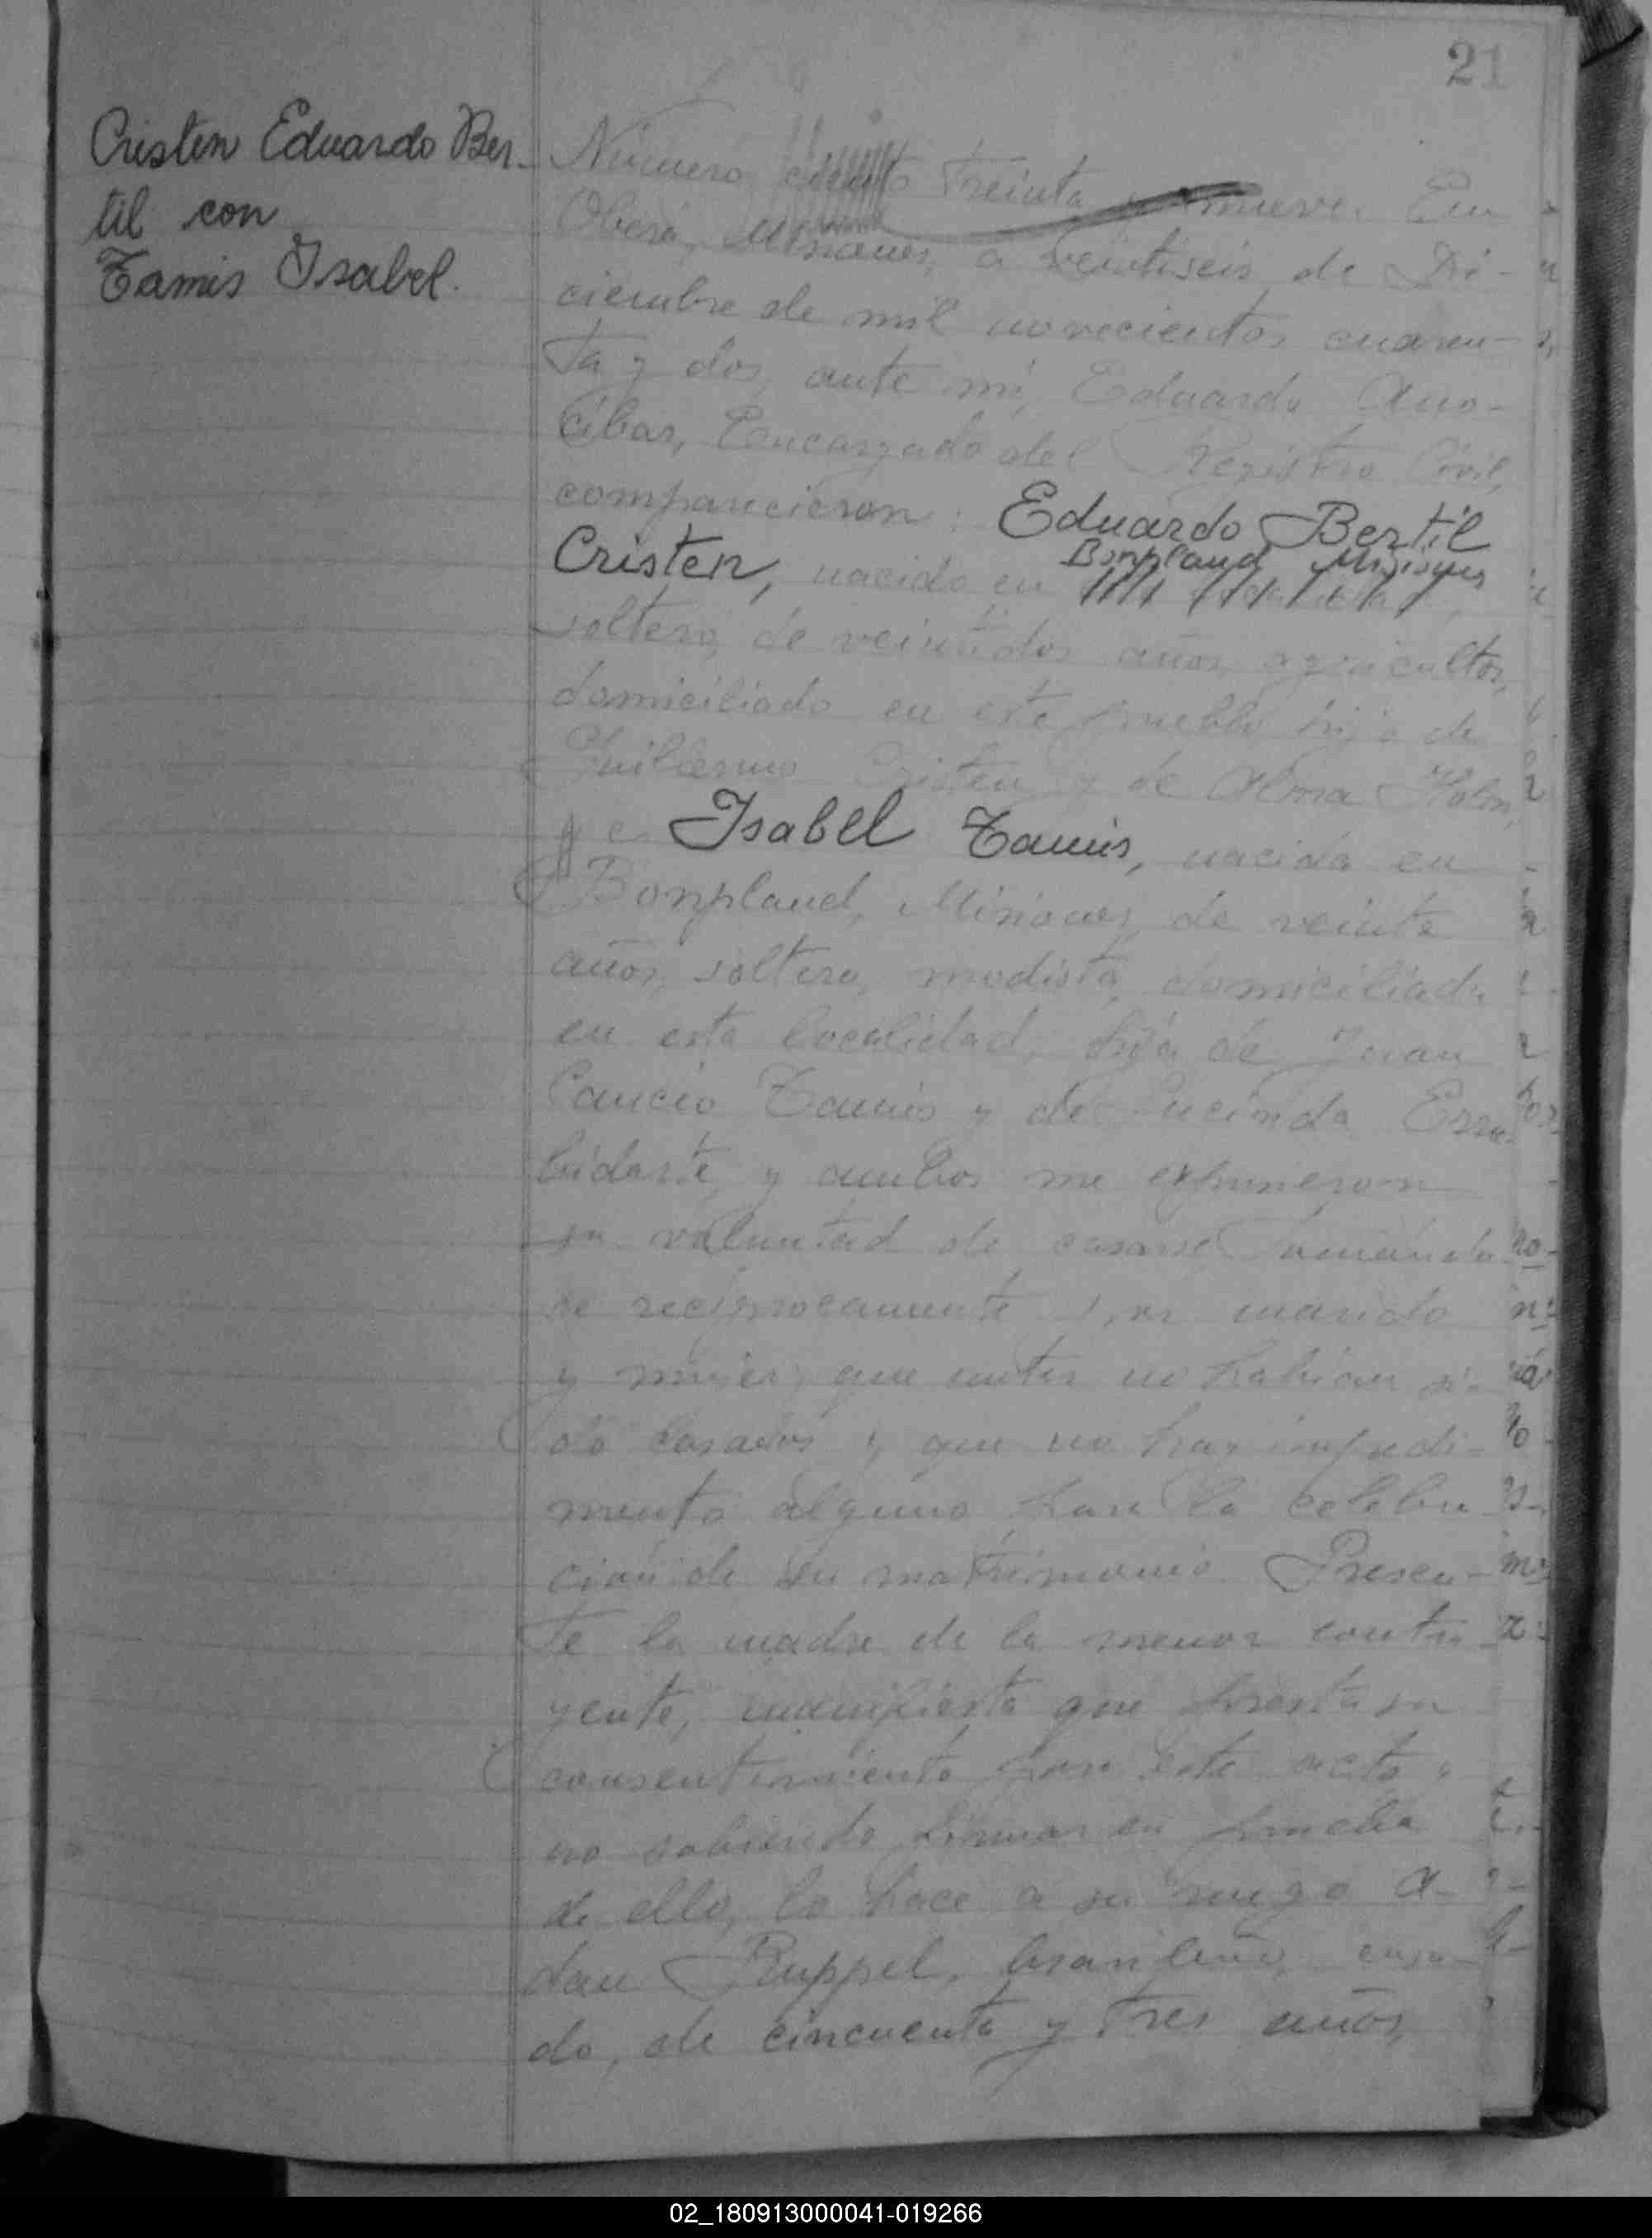 21
Cristen Eduardo Ber-
til con
Tamis Isabel.
Número ciento treinta y nueve. En
Oberá, Misiones, a veintiseis de Di-
ciembre de mil novecientos cuaren-
ta y dos, ante mí, Eduardo Ano-
cíbar, Encargado del Registro Civil,
comparecieron: Eduardo Bertil
Bonpland Misiones
Cristen, nacido en
soltero, de veintidos años, agricultor,
domiciliado en este pueblo hijo de
Guillermo Cristen y de Alma Holm,
y Isabel Tamis, nacida en
Bonpland, Misiones, de veinte
años, soltera, modista, domiciliada
en esta localidad, hija de Juan
Cancio Tamis y de Lucinda
y ambos me expusieron
su voluntad de casarse tomándo
se reciprocamente por marido
y mujer; que antes no habían si-
do casados y que no hay impedi-
mento alguno para la celebra
ción de su matrimonio. Presen-
te la madre de la menor contra
yente, manifiesta que presta su
consentimiento para este acto y
no sabiendo firmar en prueba
de ello, lo hace a su ruego A-
dan Ruppel, brasileño, casa
do, de cincuenta y tres años,
02_180913000041-019266